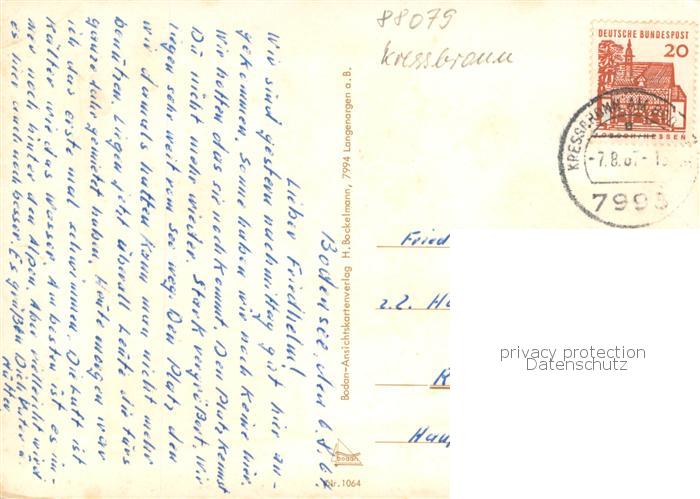 88079
Kressbronn
DEUTSCHE BUNDESPOST
20
LORSCH/HESSEN
KRESSBRONN
-7.8.67-
7993
Bodensee, den 6.8.67
Lieber Friedhelm!
Wir sind gestern nachmittag gut hier an-
gekommen. Sonne haben wir noch keine hier
wir hoffen das sie noch kommt. Den Platz kennst
Du nicht mehr wieder. Stark vergrößert. Wir
liegen sehr weit vom see weg. Den Platz den
wir damals hatten kann man nicht mehr
benützen. Liegen jetzt überall Leute die fürs
ganze Jahr gemietet haben. Heute morgen war
ich das erste mal schwimmen. Die Luft ist
kälter wie das Wasser. Am besten ist es im-
mer noch hinter den Alpen. Aber vielleicht wird
es hier auch noch besser. Es grüßen Dich, Vater u.
Mutter
Bodan-Ansichtskartenverlag H. Bockelmann, 7994 Langenargen a. B.
bodan
Nr. 1064
Fried
z.Z. Ha
K
Haup
privacy protection
Datenschutz